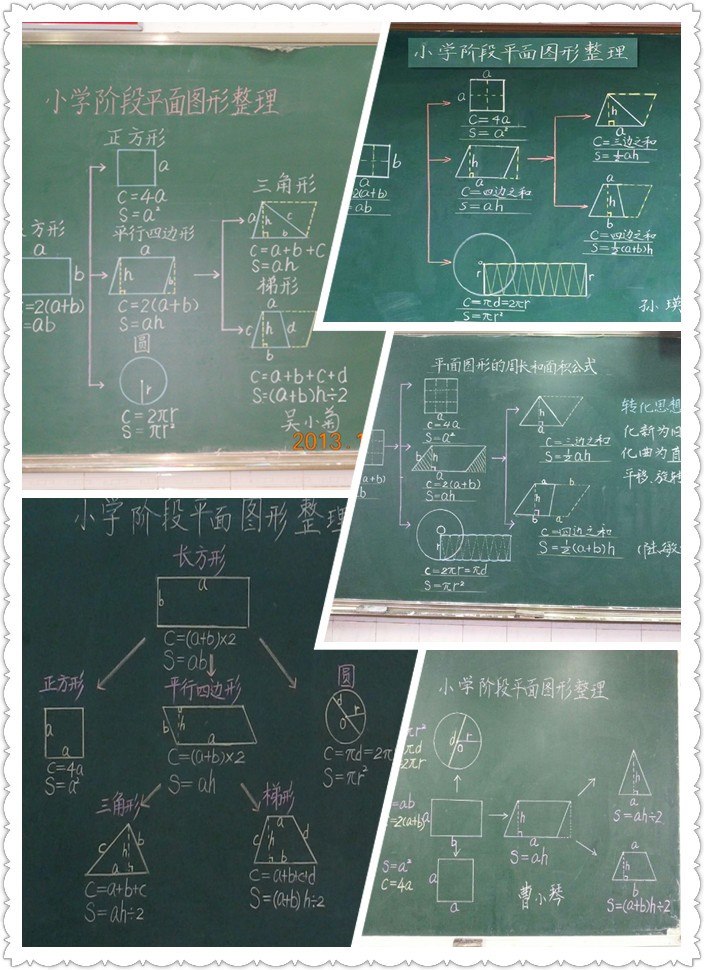 小学阶段平面图形整理
正方形
a
C=4a
S=a²
三角形
方形
a
b
=2(a+b)
=ab
平行四边形
a
h
b
C=2(a+b)
S=ah
a
h
c
b
C=a+b+c
S=ah
梯形
a
c
h
d
b
C=a+b+c+d
S=(a+b)h÷2
圆
r
C=2πr
S=πr²
吴小菊
2013.1
小学阶段平面图形整理
a
a
C=4a
S=a²
b
a
2(a+b)
=ab
h
a
C=四边之和
S=ah
h
a
C=三边之和
S=½ah
a
h
b
C=四边之和
S=½(a+b)h
r
r
C=πd=2πr
S=πr²
孙瑛
平面图形的周长和面积公式
C=4a
S=a²
(a+b)
b
h
a
C=2(a+b)
S=ah
h
a
C=三边之和
S=½ah
a
b
h
b
a
C=四边之和
S=½(a+b)h
r
C=2πr=πd
S=πr²
转化思想
化新为旧
化曲为直
平移、旋转
(陆敏
小学阶段平面图形整理
长方形
a
b
C=(a+b)×2
S=ab
正方形
a
a
C=4a
S=a²
平行四边形
b
h
a
C=(a+b)×2
S=ah
圆
d
r
O
C=πd=2π
S=πr²
三角形
c
h
b
a
C=a+b+c
S=ah÷2
梯形
a
c
h
d
b
C=a+b+c+d
S=(a+b)h÷2
小学阶段平面图形整理
πr²
πd
2πr
d
r
O
=ab
=2(a+b)
a
b
h
a
S=ah
h
a
S=ah÷2
a
h
b
S=(a+b)h÷2
S=a²
C=4a
a
a
曹小琴